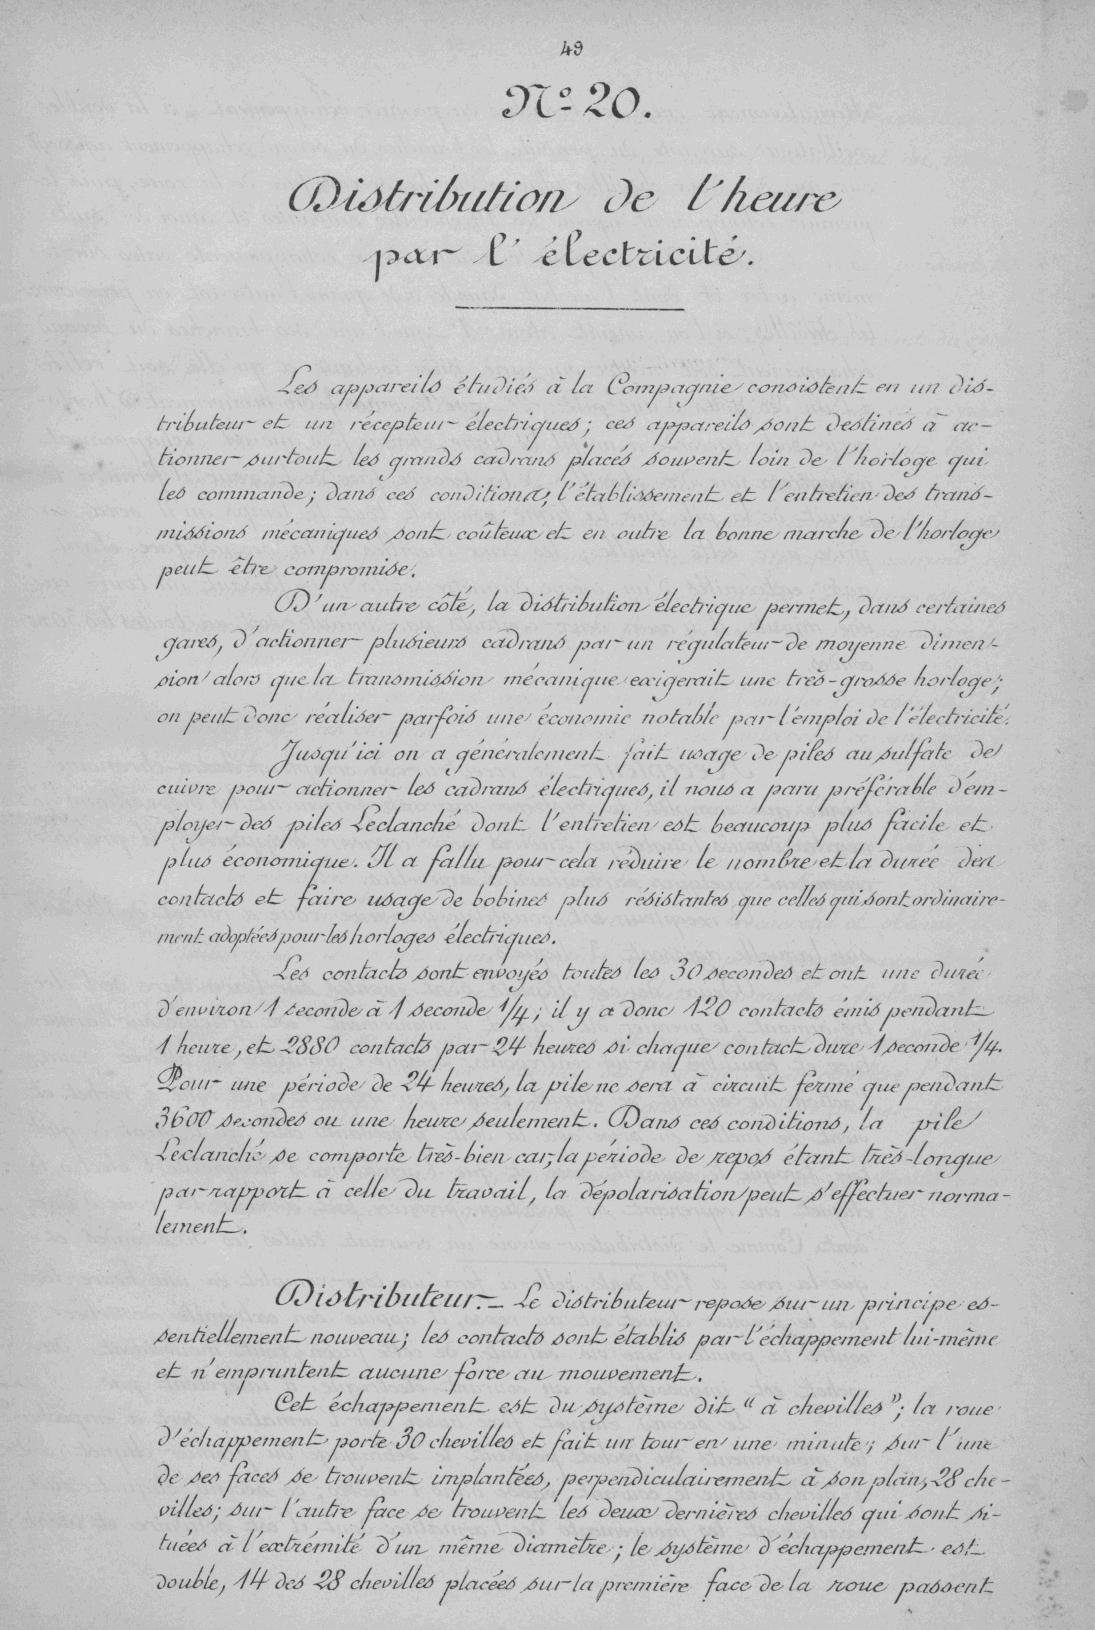 49
Nº 20.
Distribution de l'heure
par l'électricité.
Les appareils étudiés à la Compagnie consistent en un dis-
tributeur et un récepteur électriques; ces appareils sont destinés à ac-
tionner surtout les grands cadrans placés souvent loin de l'horloge qui
les commande; dans ces conditions, l'établissement et l'entretien des trans-
missions mécaniques sont coûteux et en outre la bonne marche de l'horloge
peut être compromise.
D'un autre côté, la distribution électrique permet, dans certaines
gares, d'actionner plusieurs cadrans par un régulateur de moyenne dimen-
sion alors que la transmission mécanique exigerait une très-grosse horloge;
on peut donc réaliser parfois une économie notable par l'emploi de l'électricité.
Jusqu'ici on a généralement fait usage de piles au sulfate de
cuivre pour actionner les cadrans électriques, il nous a paru préférable d'em-
ployer des piles Leclanché dont l'entretien est beaucoup plus facile et
plus économique. Il a fallu pour cela réduire le nombre et la durée des
contacts et faire usage de bobines plus résistantes que celles qui sont ordinaire-
ment adoptées pour les horloges électriques.
Les contacts sont envoyés toutes les 30 secondes et ont une durée
d'environ 1 seconde à 1 seconde 1/4; il y a donc 120 contacts émis pendant
1 heure, et 2880 contacts par 24 heures si chaque contact dure 1 seconde 1/4.
Pour une période de 24 heures, la pile ne sera à circuit fermé que pendant
3600 secondes ou une heure seulement. Dans ces conditions, la pile
Leclanché se comporte très-bien car, la période de repos étant très-longue
par rapport à celle du travail, la dépolarisation peut s'effectuer norma-
lement.
Distributeur.- Le distributeur repose sur un principe es-
sentiellement nouveau; les contacts sont établis par l'échappement lui-même
et n'empruntent aucune force au mouvement.
Cet échappement est du système dit "à chevilles"; la roue
d'échappement porte 30 chevilles et fait un tour en une minute; sur l'une
de ses faces se trouvent implantées, perpendiculairement à son plan, 28 che-
villes; sur l'autre face se trouvent les deux dernières chevilles qui sont si-
tuées à l'extrémité d'un même diamètre; le système d'échappement est
double, 14 des 28 chevilles placées sur la première face de la roue passent